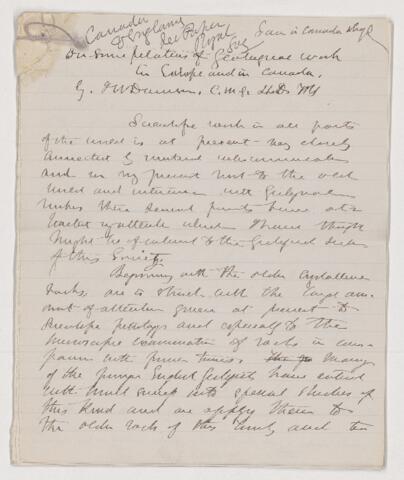 Canada
& England
See Paper
Royal
Soc
On Some Relations of Geological Work
in Europe and in Canada.
By J W Dawson, C.M.G. LL.D. FRS
Scientific work in all parts
of the world is at present very closely
connected by mutual intercommunication
and in my present visit to the old
world and interviews with Geologists
makes there several points have
attracted my attention which I have thought
might be of interest to the Geological Section
of this Society.
Beginning with the older crystalline
rocks, one is struck with the large am-
ount of attention given at present to
descriptive petrology and especially to the
microscopic examination of rocks in com-
parison with former times. Many
of the younger English Geologists have entered
with much success into special studies of
this kind and are applying them to
the older rocks of this country and